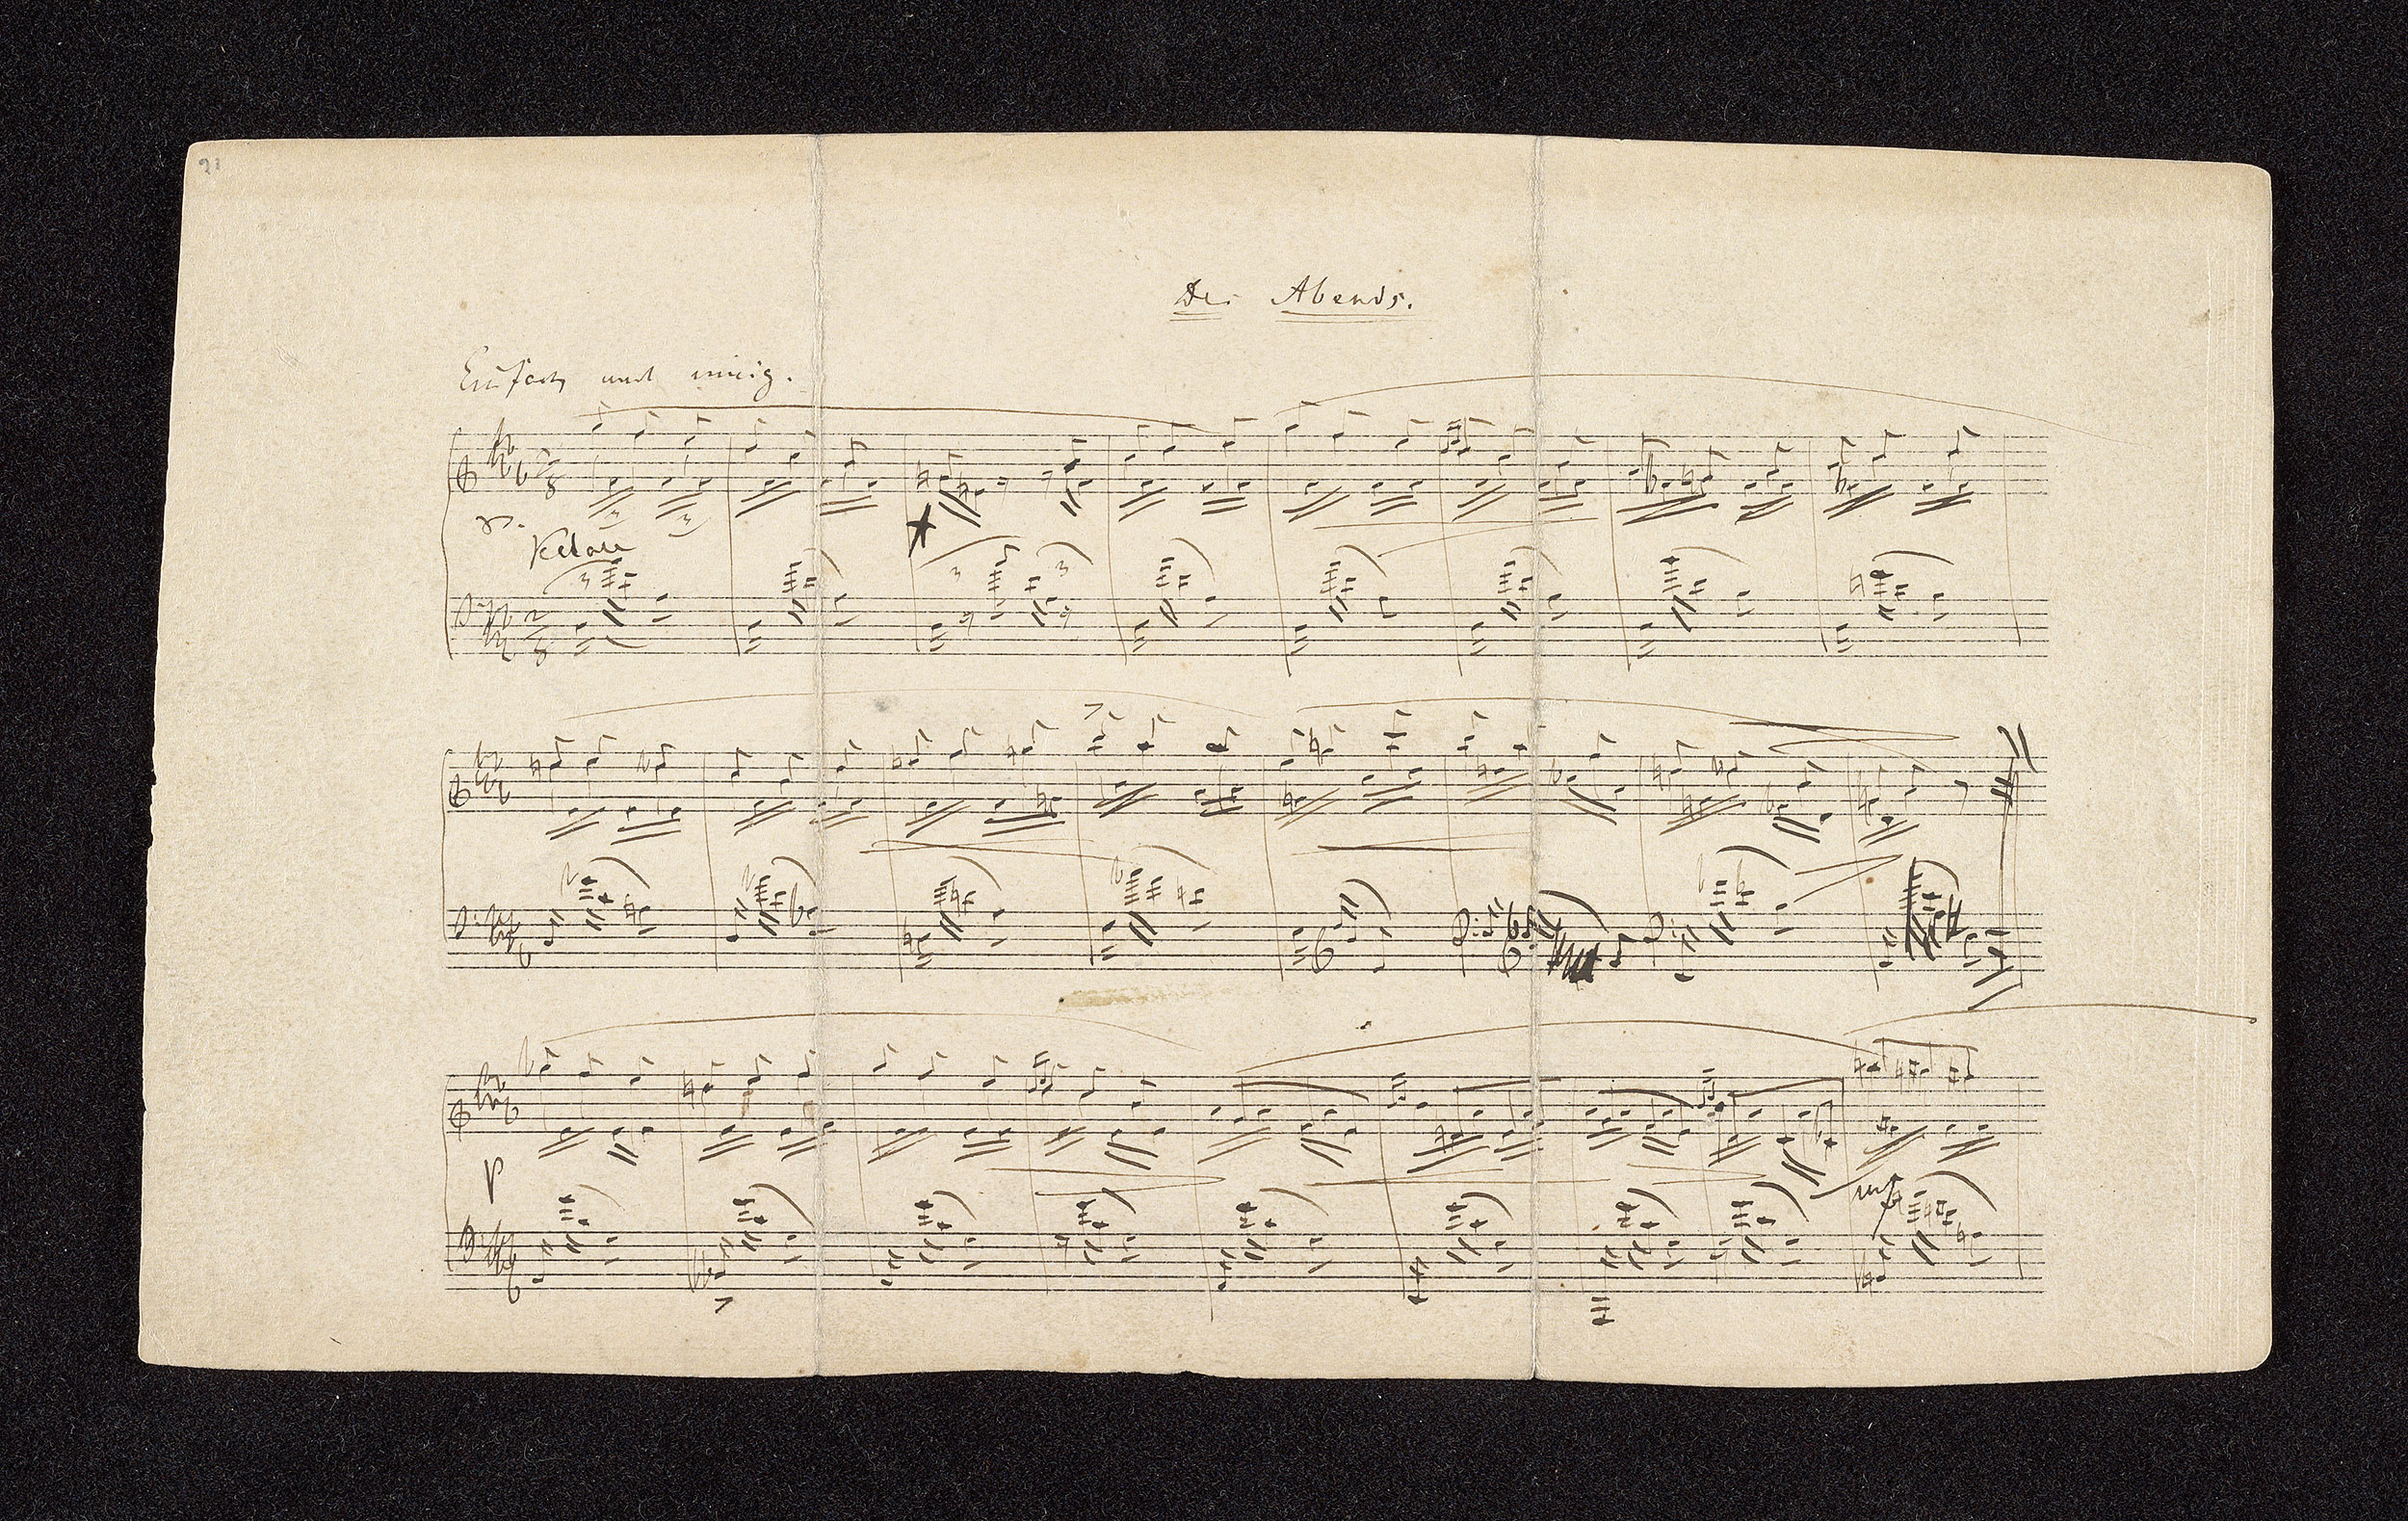 21
Des Abends.
Einfach und innig.
2 8
3 3
p.
Pedale
3 3 3
2 8
p
mf